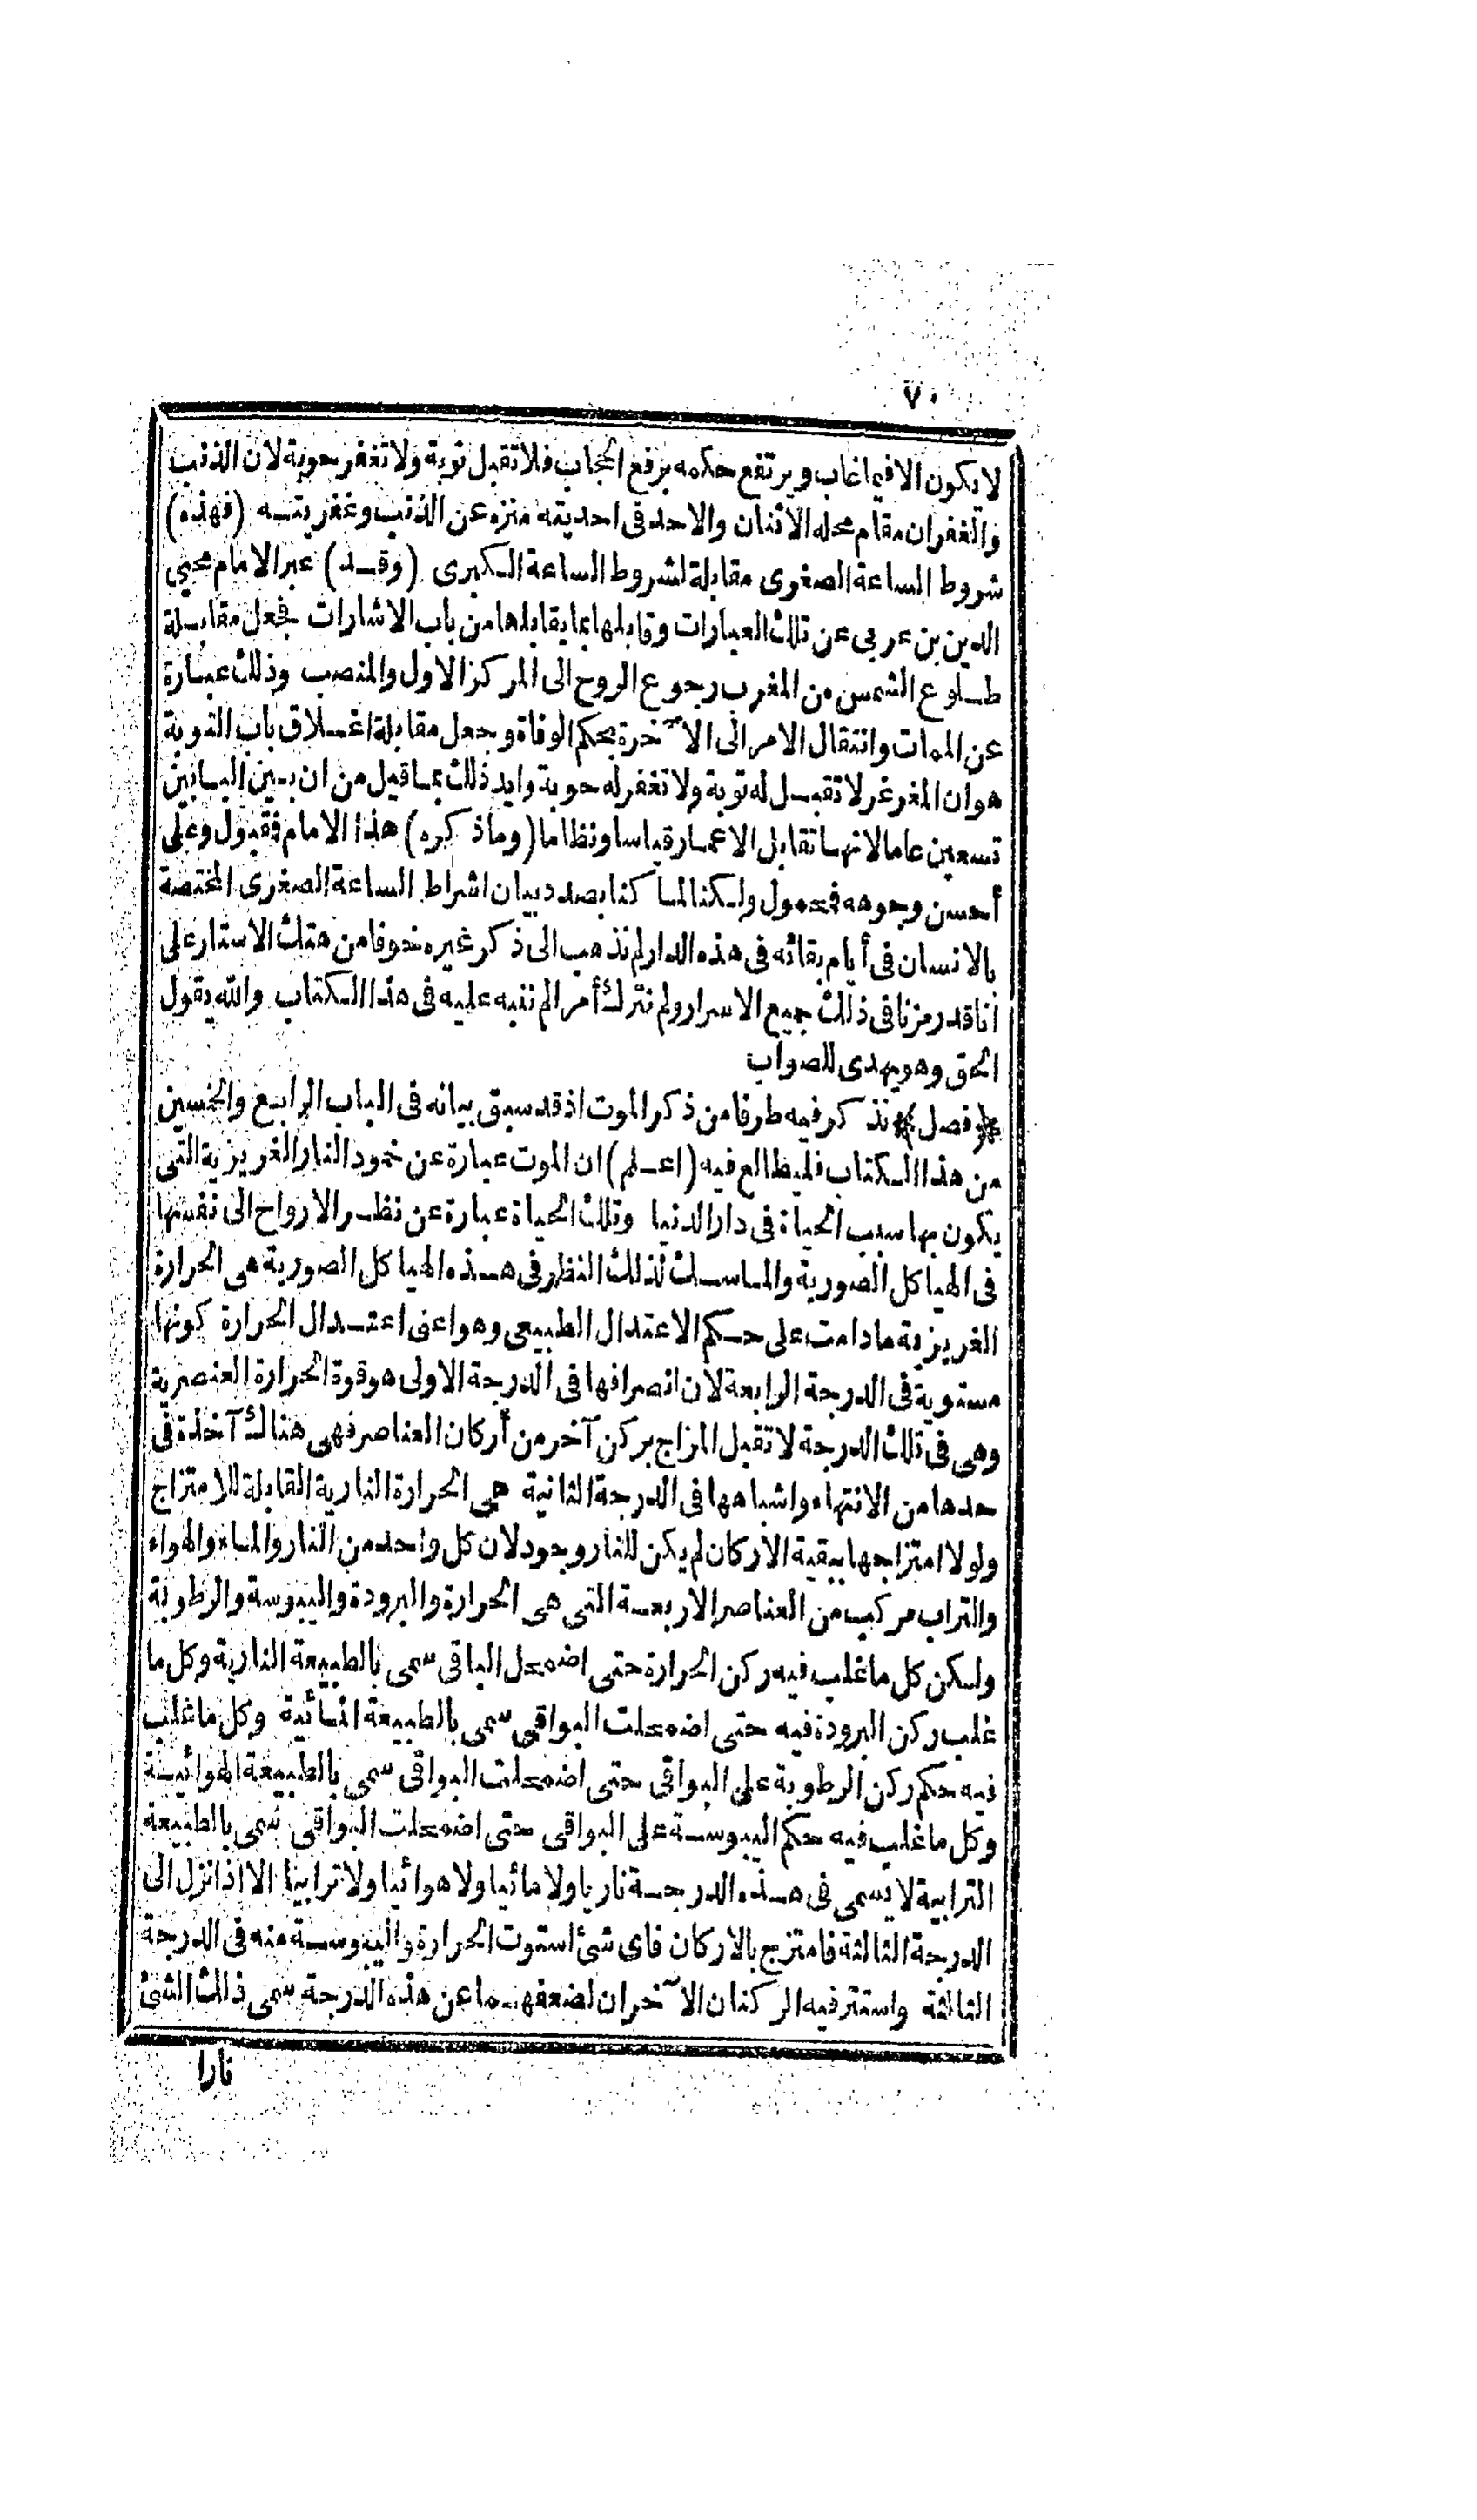 ٧٠
لا يكون الا فيما غاب ويرتفع حكمه برفع الحجاب فلا تقبل توبة ولا تغفر حوبة لان الذنب
والغفران مقام محله الاثنان والاحد فى احديته منزه عن الذنب وغفريته (فهذه)
شروط الساعة الصغرى مقابلة لشروط الساعة الكبرى (وقد) عبر الامام محيي
الدين بن عربى عن تلك العبارات وقابلها بما يقابلها من باب الاشارات فجعل مقابلة
طلوع الشمس من المغرب رجوع الروح الى المركز الاول والمنصب وذلك عبارة
عن الممات وانتقال الامر الى الآخرة بحكم الوفاة وجعل مقابلة اغلاق باب التوبة
هو ان المغرغر لا تقبل له توبة ولا تغفر له حوبة وايد ذلك بما قيل من ان بين البابين
تسعين عاما لانها تقابل الاعمار قياسا ونظاما (وما ذكره) هذا الامام فمقبول وعلى
أحسن وجوهه فمحمول ولكنا لما كنا بصدد بيان اشراط الساعة الصغرى المختصة
بالانسان فى أيام بقائه فى هذه الدار لم نذهب الى ذكر غيره خوفا من هتك الاستار على
أنا قد رمزنا فى ذلك جميع الاسرار ولم نترك أمرا لم ننبه عليه فى هذا الكتاب والله يقول
الحق وهو يهدى للصواب
﴿فصل﴾ نذكر فيه طرفا من ذكر الموت اذ قد سبق بيانه فى الباب الرابع والخمسين
من هذا الكتاب فليطالع فيه (اعلم) ان الموت عبارة عن خمود النار الغريزية التى
يكون بها سبب الحياة فى دار الدنيا وتلك الحياة عبارة عن نظر الارواح الى نفسها
فى الهياكل الصورية والماسك لذلك النظر فى هذه الهياكل الصورية هى الحرارة
الغريزية ما دامت على حكم الاعتدال الطبيعى وهو اعنى اعتدال الحرارة كونها
مستوية فى الدرجة الرابعة لان انصرافها فى الدرجة الاولى هو قوة الحرارة العنصرية
وهى فى تلك الدرجة لا تقبل المزاج بركن آخر من أركان العناصر فهى هناك آخذة فى
حدها من الانتهاء واشباهها فى الدرجة الثانية هى الحرارة النارية القابلة للامتزاج
ولولا امتزاجها ببقية الأركان لم يكن للنار وجود لان كل واحد من النار والماء والهواء
والتراب مركب من العناصر الاربعة التى هى الحرارة والبرودة واليبوسة والرطوبة
ولكن كل ما غلب فيه ركن الحرارة حتى اضمحل الباقى سمى بالطبيعة النارية وكل ما
غلب ركن البرودة فيه حتى اضمحلت البواقى سمى بالطبيعة المائية وكل ما غلب
فيه حكم ركن الرطوبة على البواقى حتى اضمحلت البواقى سمى بالطبيعة الهوائية
وكل ما غلب فيه حكم اليبوسة على البواقى حتى اضمحلت البواقى سمى بالطبيعة
الترابية لا يسمى فى هذه الدرجة ناريا ولا مائيا ولا هوائيا ولا ترابيا الا اذا نزل الى
الدرجة الثالثة فامتزج بالاركان فاى شئ استوت الحرارة واليبوسة منه فى الدرجة
الثالثة واستتر فيه الركنان الآخران لضعفهما عن هذه الدرجة سمى ذلك الشئ
نارا